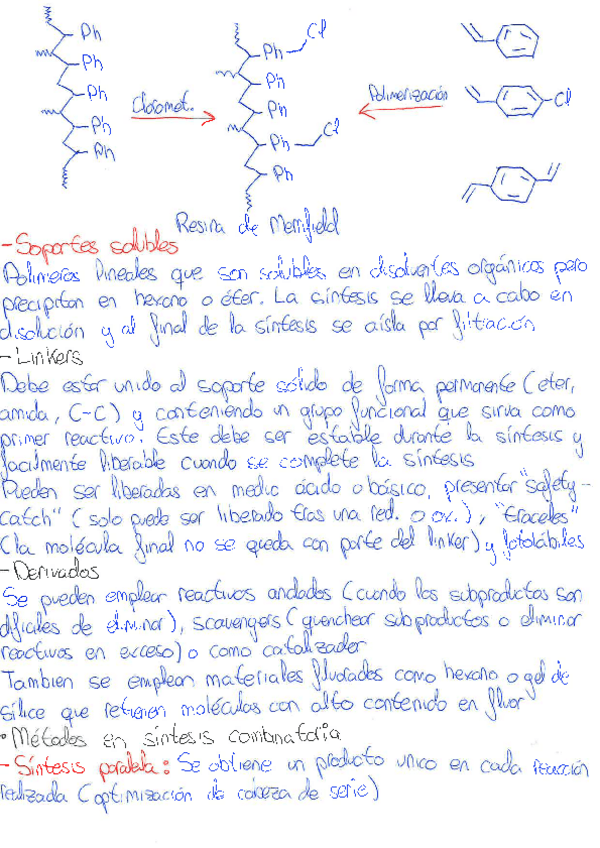 Ph
Ph
Ph
Ph
Ph
Cloromet.
Cl
Ph
Ph
Ph
Ph
Cl
Ph
Polimerización
Cl
Resina de Merrifield
- Soportes solubles
Polímeros lineales que son solubles en disolventes orgánicos pero
precipitan en hexano o éter. La síntesis se lleva a cabo en
disolución y al final de la síntesis se aísla por filtración
- Linkers
Debe estar unido al soporte sólido de forma permanente (eter,
amida, C-C) y conteniendo un grupo funcional que sirva como
primer reactivo. Este debe ser estable durante la síntesis y
facilmente liberable cuando se complete la síntesis
Pueden ser liberadas en medio ácido o básico, presentar "safety-
catch" (solo puede ser liberado tras una red. o ox.), "traceless"
(la molécula final no se queda con parte del linker) y fotolábiles
- Derivados
Se pueden emplear reactivos anclados (cuando los subproductos son
difíciles de eliminar), scavengers (quenchear subproductos o eliminar
reactivos en exceso) o como catalizador
Tambien se emplean materiales fluorados como hexano o gel de
sílice que retienen moléculas con alto contenido en fluor
• Métodos en síntesis combinatoria
- Síntesis paralela: Se obtiene un producto unico en cada reacción
realizada (optimización de cabeza de serie)